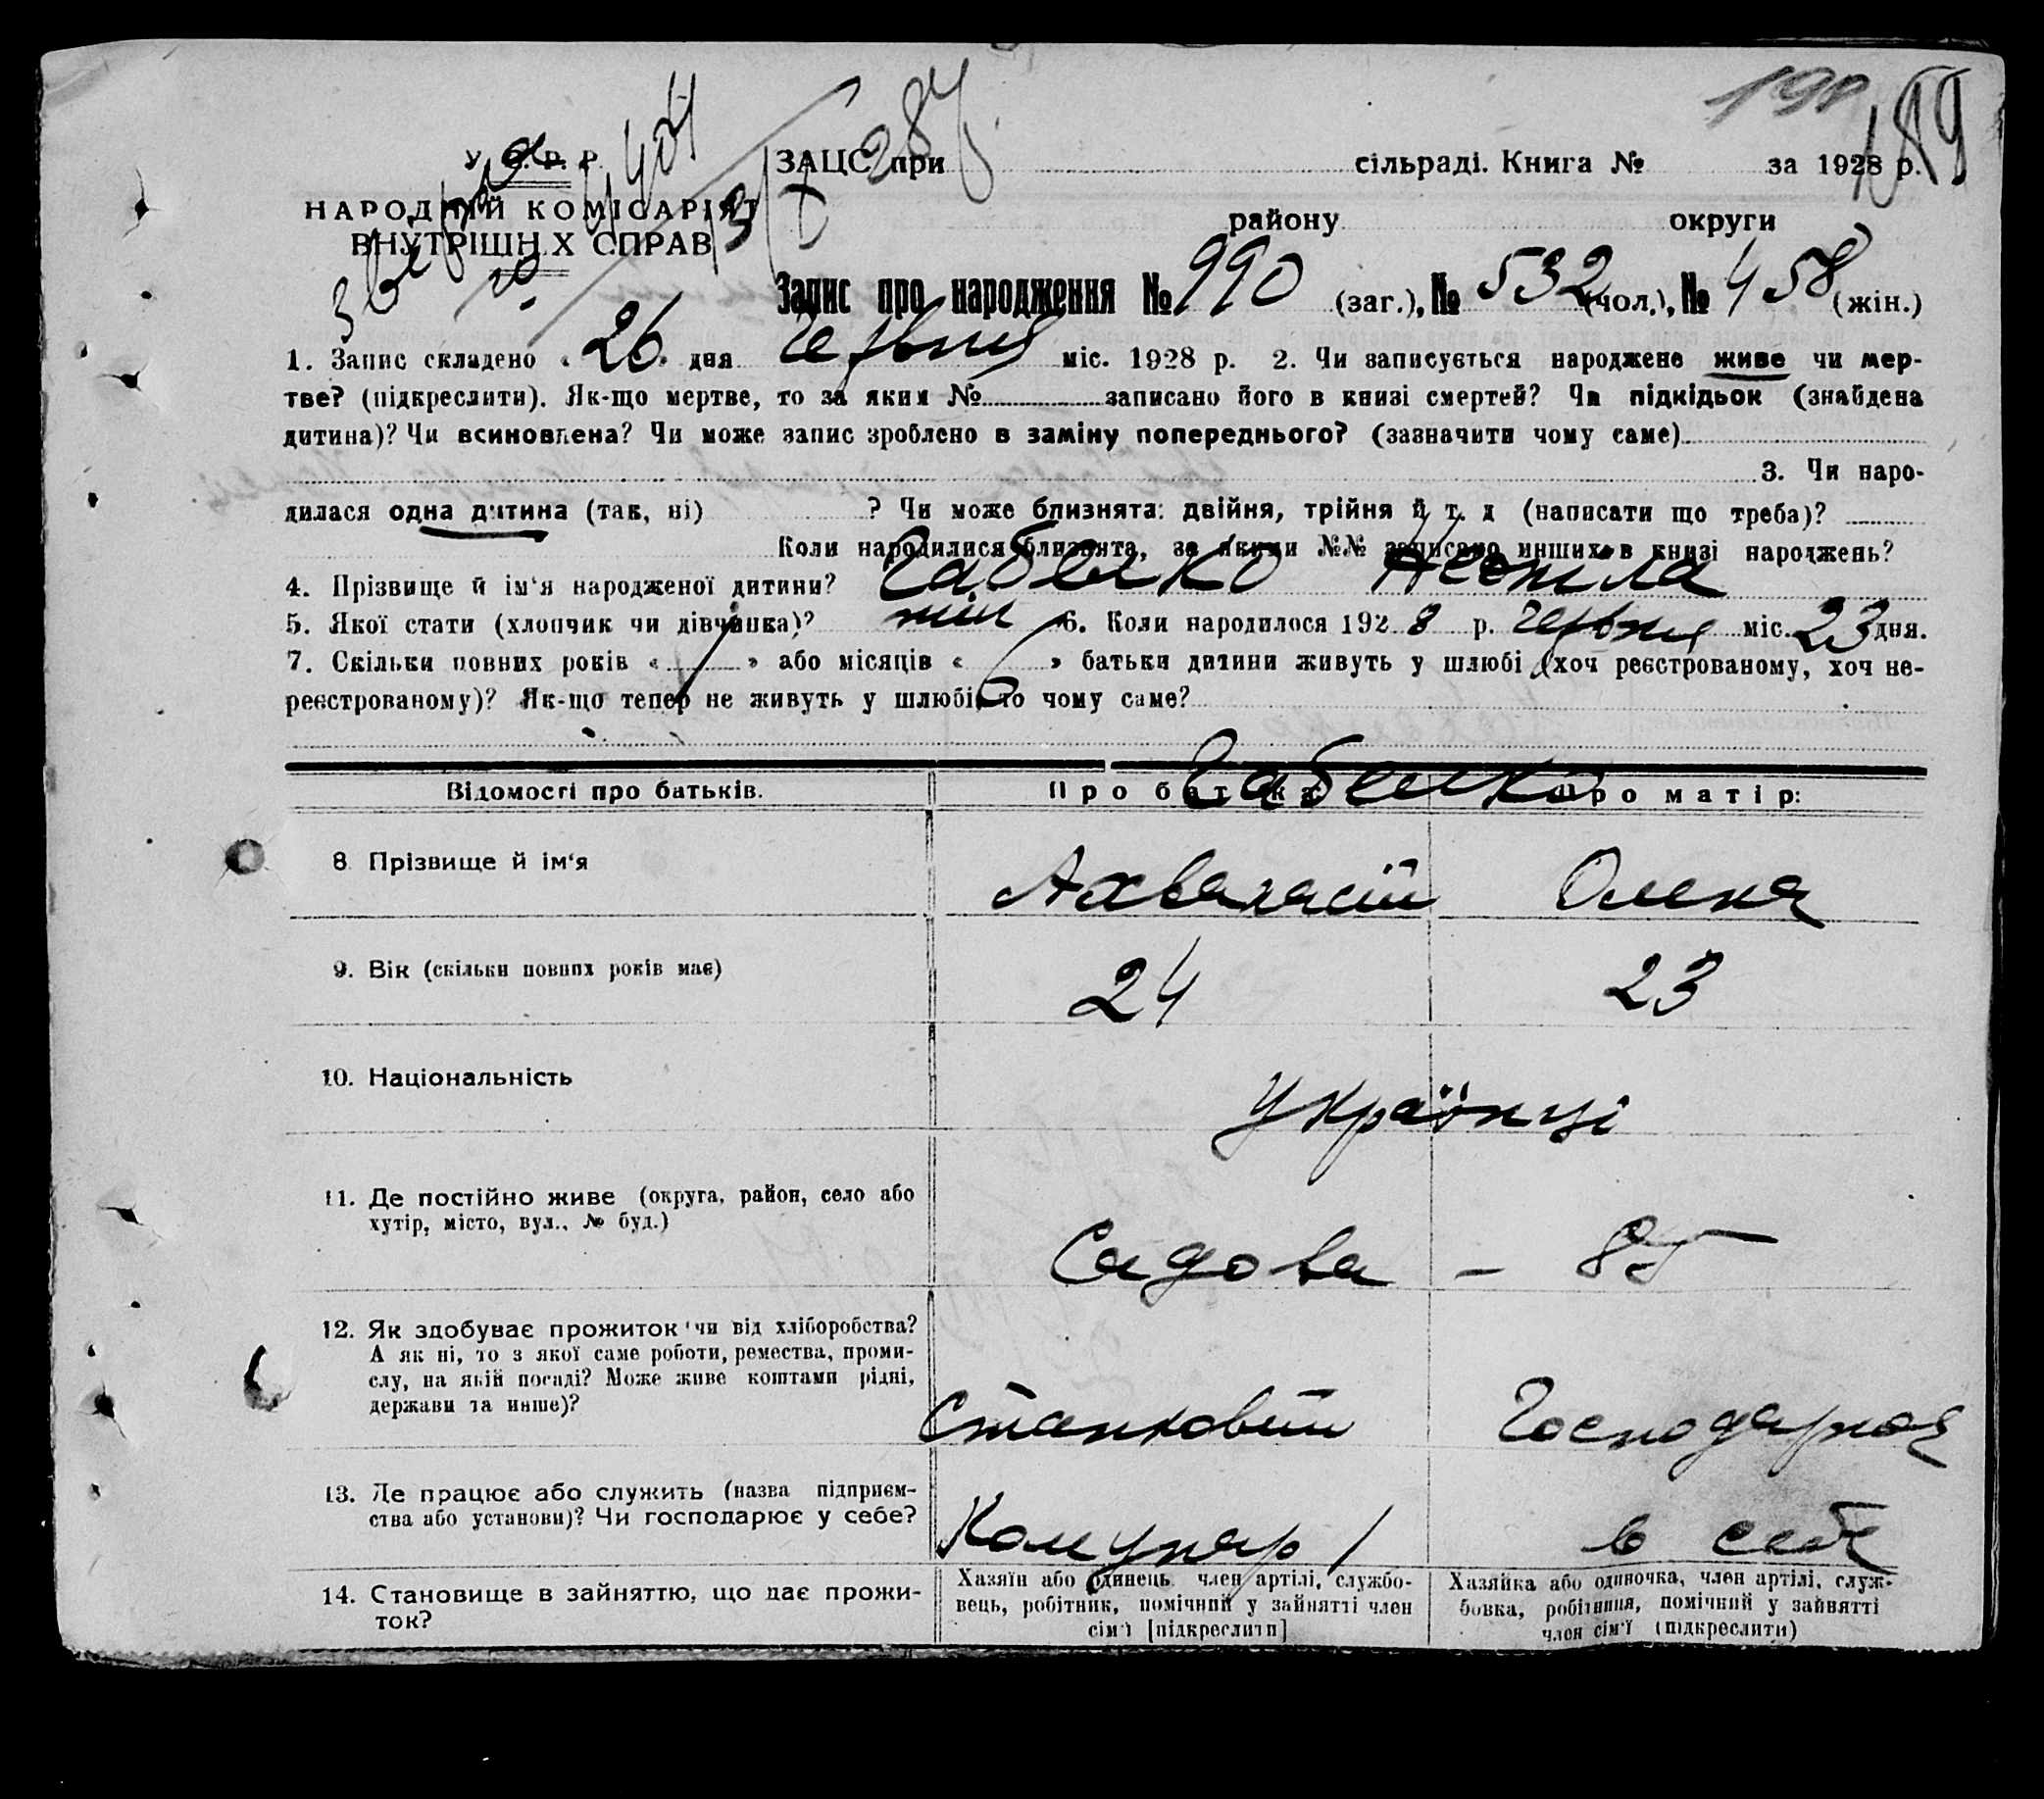 190
189
287
У. С. Р. Р.
ЗАЦС при сільраді. Книга № за 1928 р.
НАРОДНІЙ КОМІСАРІЯТ
ВНУТРІШН.Х СПРАВ
району округи
Запис про народження № 990 (заг.), № 532 (чол.), № 458 (жін.)
1. Запис складено « 26 » дня Червня міс. 1928 р. 2. Чи записується народжене живе чи мер-
тве? (підкреслити). Як-що мертве, то за яким № записано його в книзі смертей? Чи підкідьок (знайдена
дитина)? Чи всиновлена? Чи може запис зроблено в заміну попереднього? (зазначити чому саме)
3. Чи наро-
дилася одна дитина (так, ні) ? Чи може близнята: двійня, трійня й т. д (написати що треба)?
Коли народилися близнята, за якими №№ записано инших в книзі народжень?
4. Прізвище й ім'я народженої дитини? Бабенко Неоніла
5. Якої стати (хлопчик чи дівчинка)? жін 6. Коли народилося 1928 р. Червня міс. 23 дня.
7. Скільки повних років « » або місяців « » батьки дитини живуть у шлюбі (хоч реєстрованому, хоч не-
реєстрованому)? Як-що тепер не живуть у шлюбі, то чому саме?
Бабенко
Відомості про батьків. Про батька: Про матір:
8 Прізвище й ім'я Ахванасій Олена
9. Вік (скільки повних років має) 24 23
10. Національність Українці
11. Де постійно живе (округа, район, село або
хутір, місто, вул., № буд.)
Садова – 85
12. Як здобуває прожиток чи від хліборобства?
А як ні, то з якої саме роботи, ремества, проми-
слу, на якій посаді? Може живе коштами рідні,
держави та инше)?
Станковий Господарка
13. Де працює або служить (назва підприєм-
ства або установи)? Чи господарює у себе?
Комунар в себе
14. Становище в зайняттю, що дає прожи-
ток?
Хазяїн або одинець, член артілі, службо-
вець, робітник, помічний у зайнятті член
сім'ї [підкреслити]
Хазяйка або одиночка, член артілі, служ-
бовка, робітниця, помічний у зайнятті
член сім'ї (підкреслити)